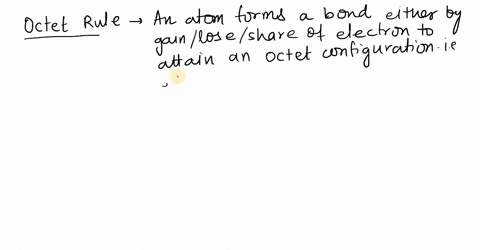 Octet Rule → An atom forms a bond either by
gain/lose/share of electron to
attain an octet configuration. i.e
,